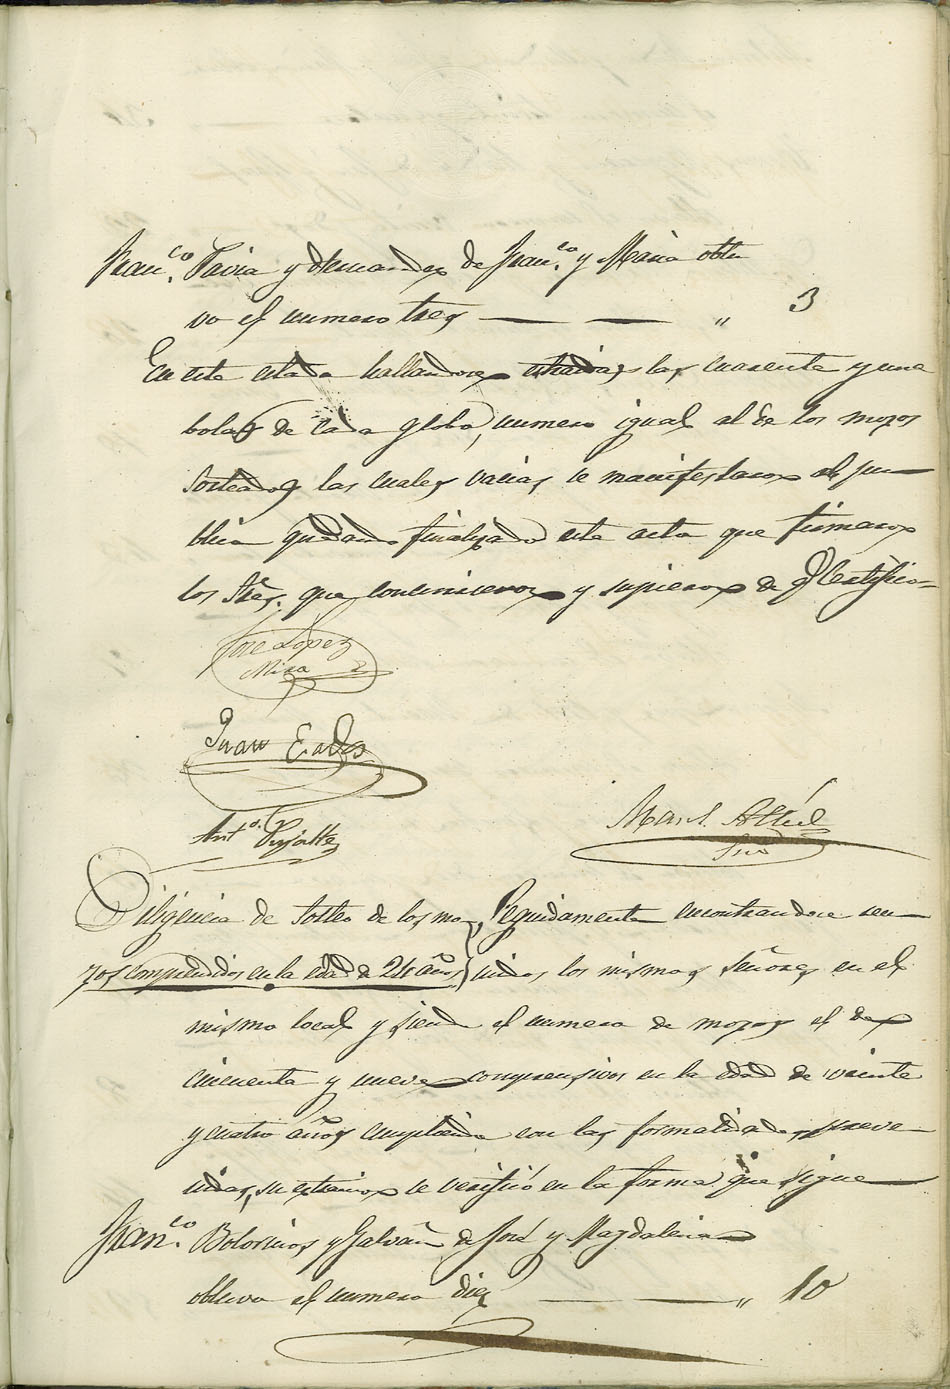 Fran.co Tavira y Hernandez de Fran.co y Maria obtu
vo el numero tres — — „ 3
En este estado hallandose extraidas las cuarenta y una
bolas de cada globo, numero igual al de los mozos
Sorteados las cuales vacias se manifestaron al pu
blico quedando finalizado este acta que firmaron
los Sres. que concurrieron y supieron de q.e Certifico=
Jose Lopez
Mira
Juan
Ant.o
Man.l
Srio
Diligencia de Sorteo de los mo
zos comprendidos en la edad de 24 años
Seguidamente encontrandose reu
nidos los mismos señores en el
mismo local y siendo el numero de mozos el de
cincuenta y nueve comprensivos en la edad de veinte
y cuatro años cumpliendo con las formalidades preve
nidas, su extraccion se verificó en la forma que sigue
Fran.co Bolorinos y Galvañ de José y Magdalena
obtuvo el numero diez — — „ 10